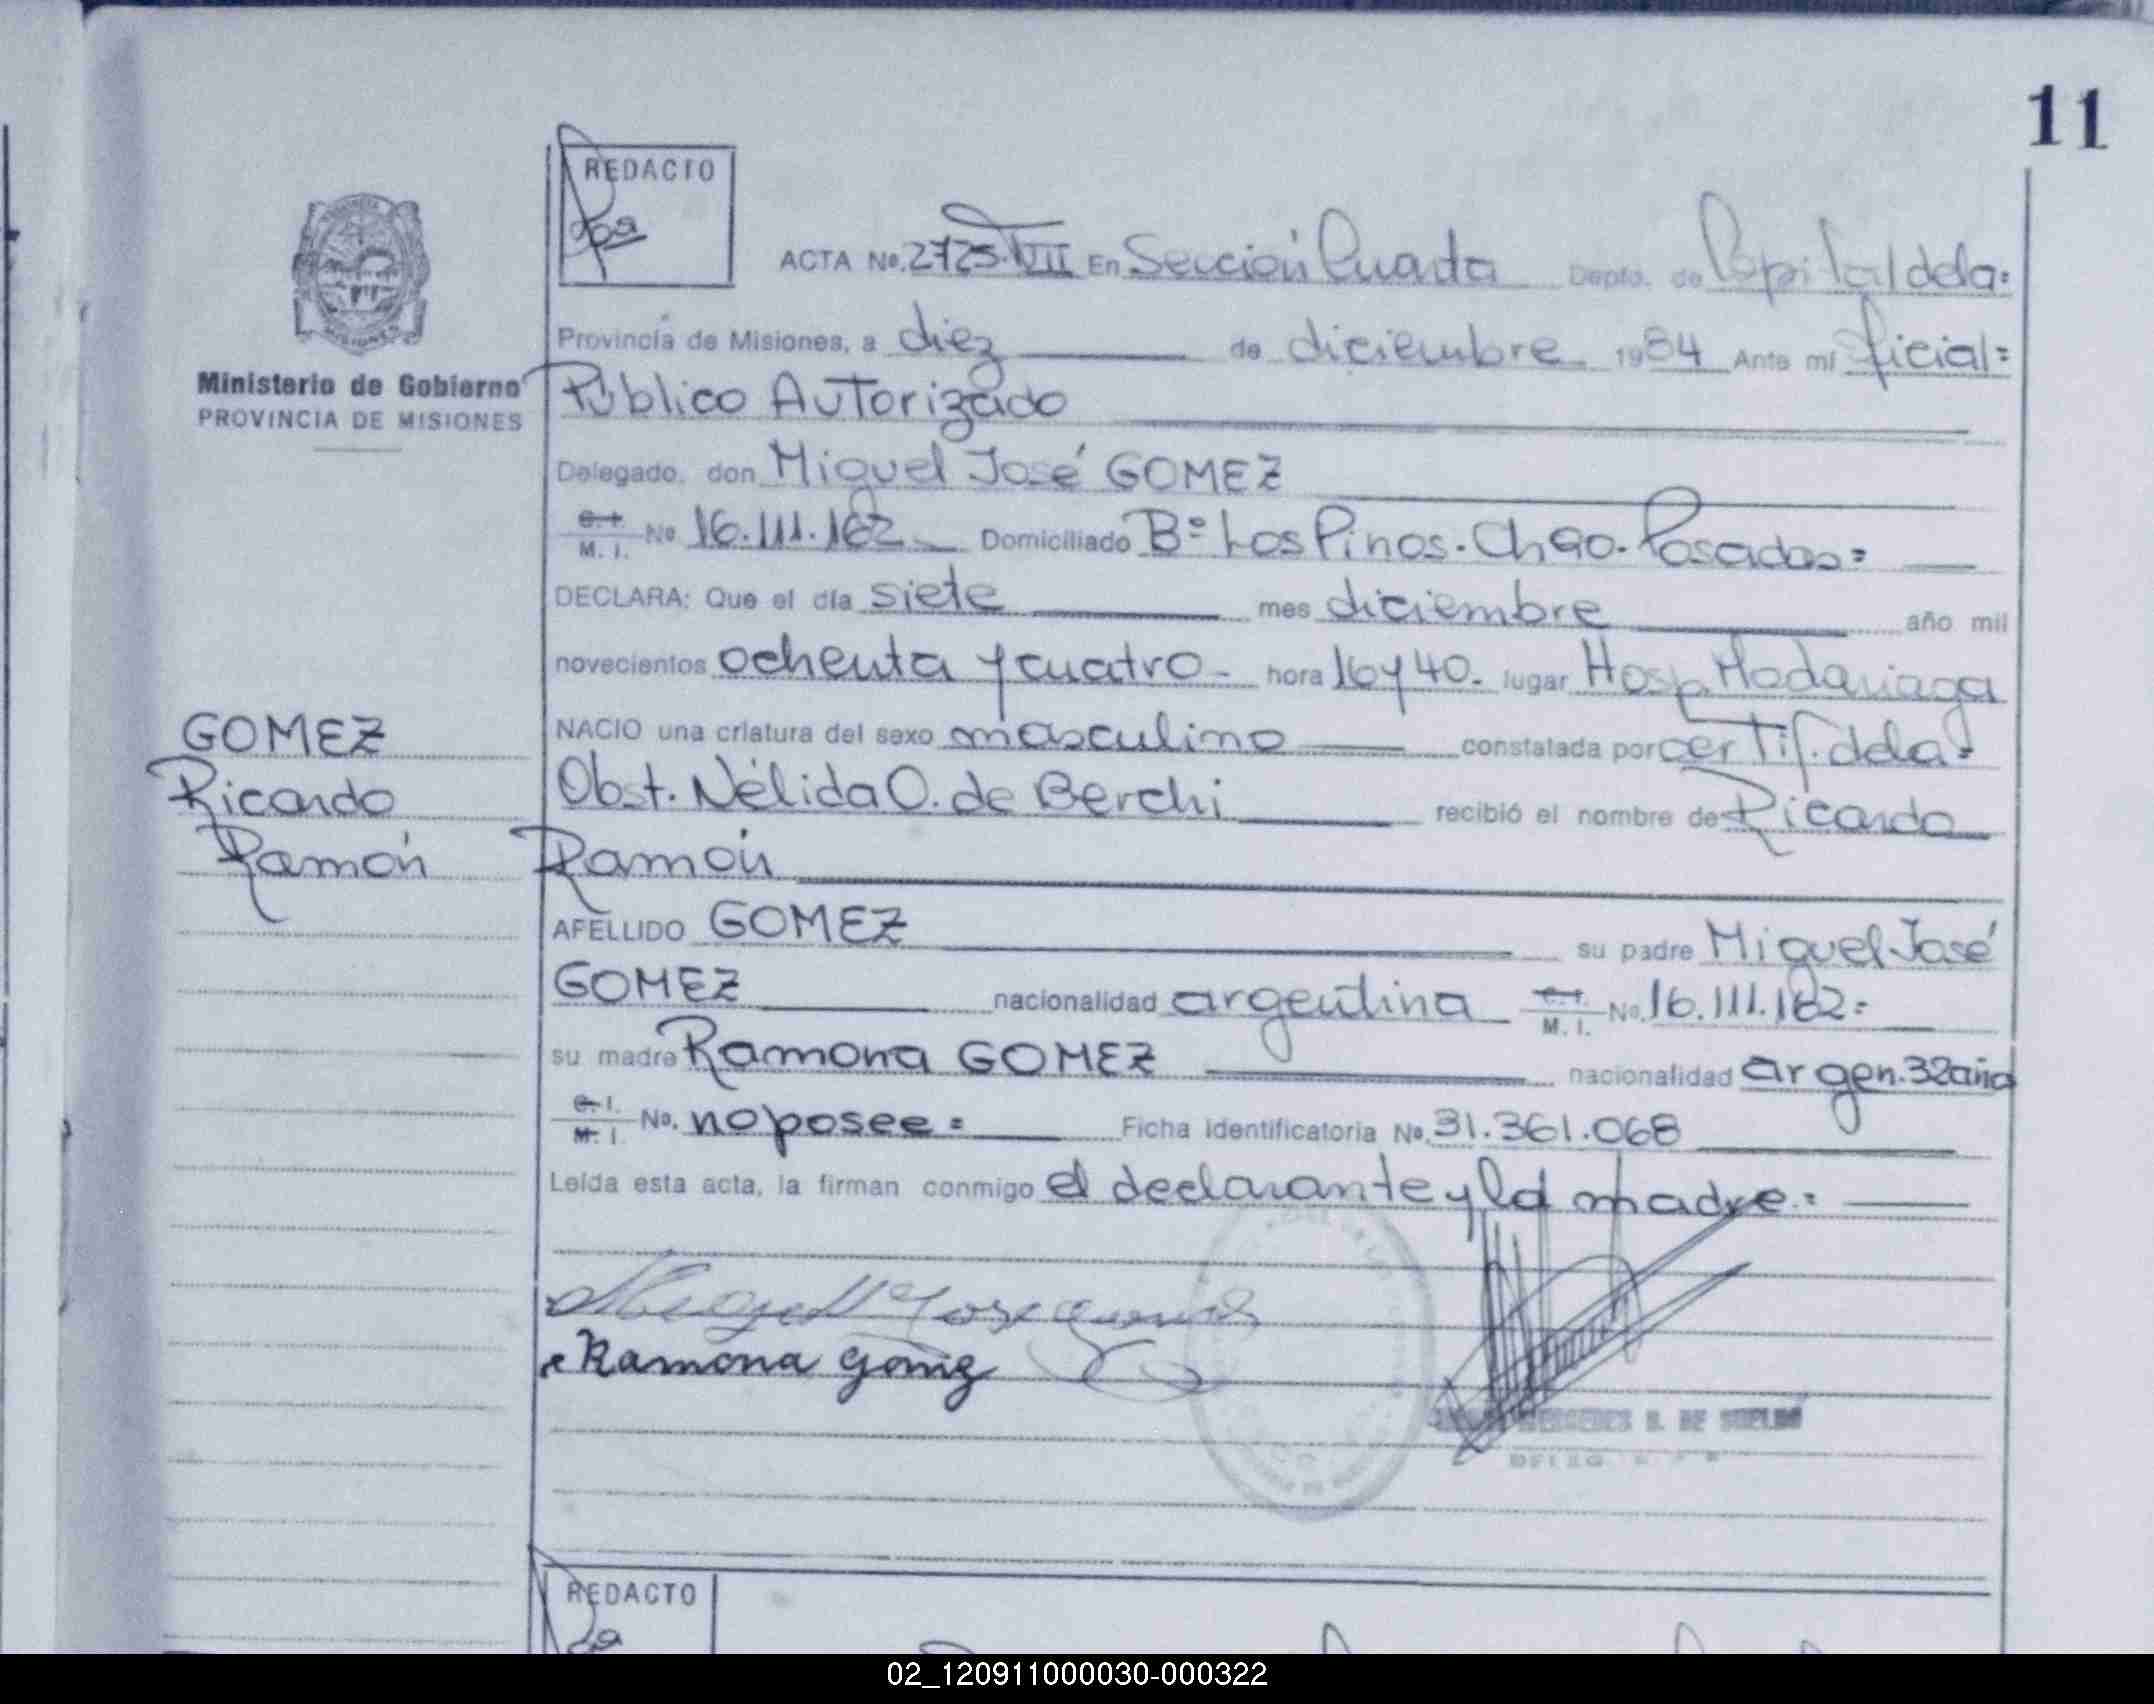 11
REDACTO
ACTA Nº. 2725-TVII En Sección Cuarta Depto. de Capital de la=
Provincia de Misiones, a diez de diciembre 1984 Ante mí Oficial=
Ministerio de Gobierno
PROVINCIA DE MISIONES
Público Autorizado
Delegado, don Miguel José GOMEZ
C.I. M. I. Nº 16.111.162 Domiciliado Bº Los Pinos. Chao. Posadas=
DECLARA: Que el día siete mes diciembre año mil
novecientos ochenta y cuatro- hora 16 y 40. lugar Hosp. Madariaga
GOMEZ
Ricardo
Ramón
NACIO una criatura del sexo masculino constatada por certif. de la=
Obst. Nélida O. de Berchi recibió el nombre de Ricardo
Ramón
APELLIDO GOMEZ su padre Miguel José
GOMEZ nacionalidad argentina C.I. M. I. Nº. 16.111.162=
su madre Ramona GOMEZ nacionalidad argen. 32 año
C.I. M.I. Nº. no posee= Ficha identificatoria Nº. 31.361.068
Leída esta acta, la firman conmigo el declarante y la madre=
Ramona gomez
MERCEDES B. DE
DELEG.
REDACTO
02_120911000030-000322